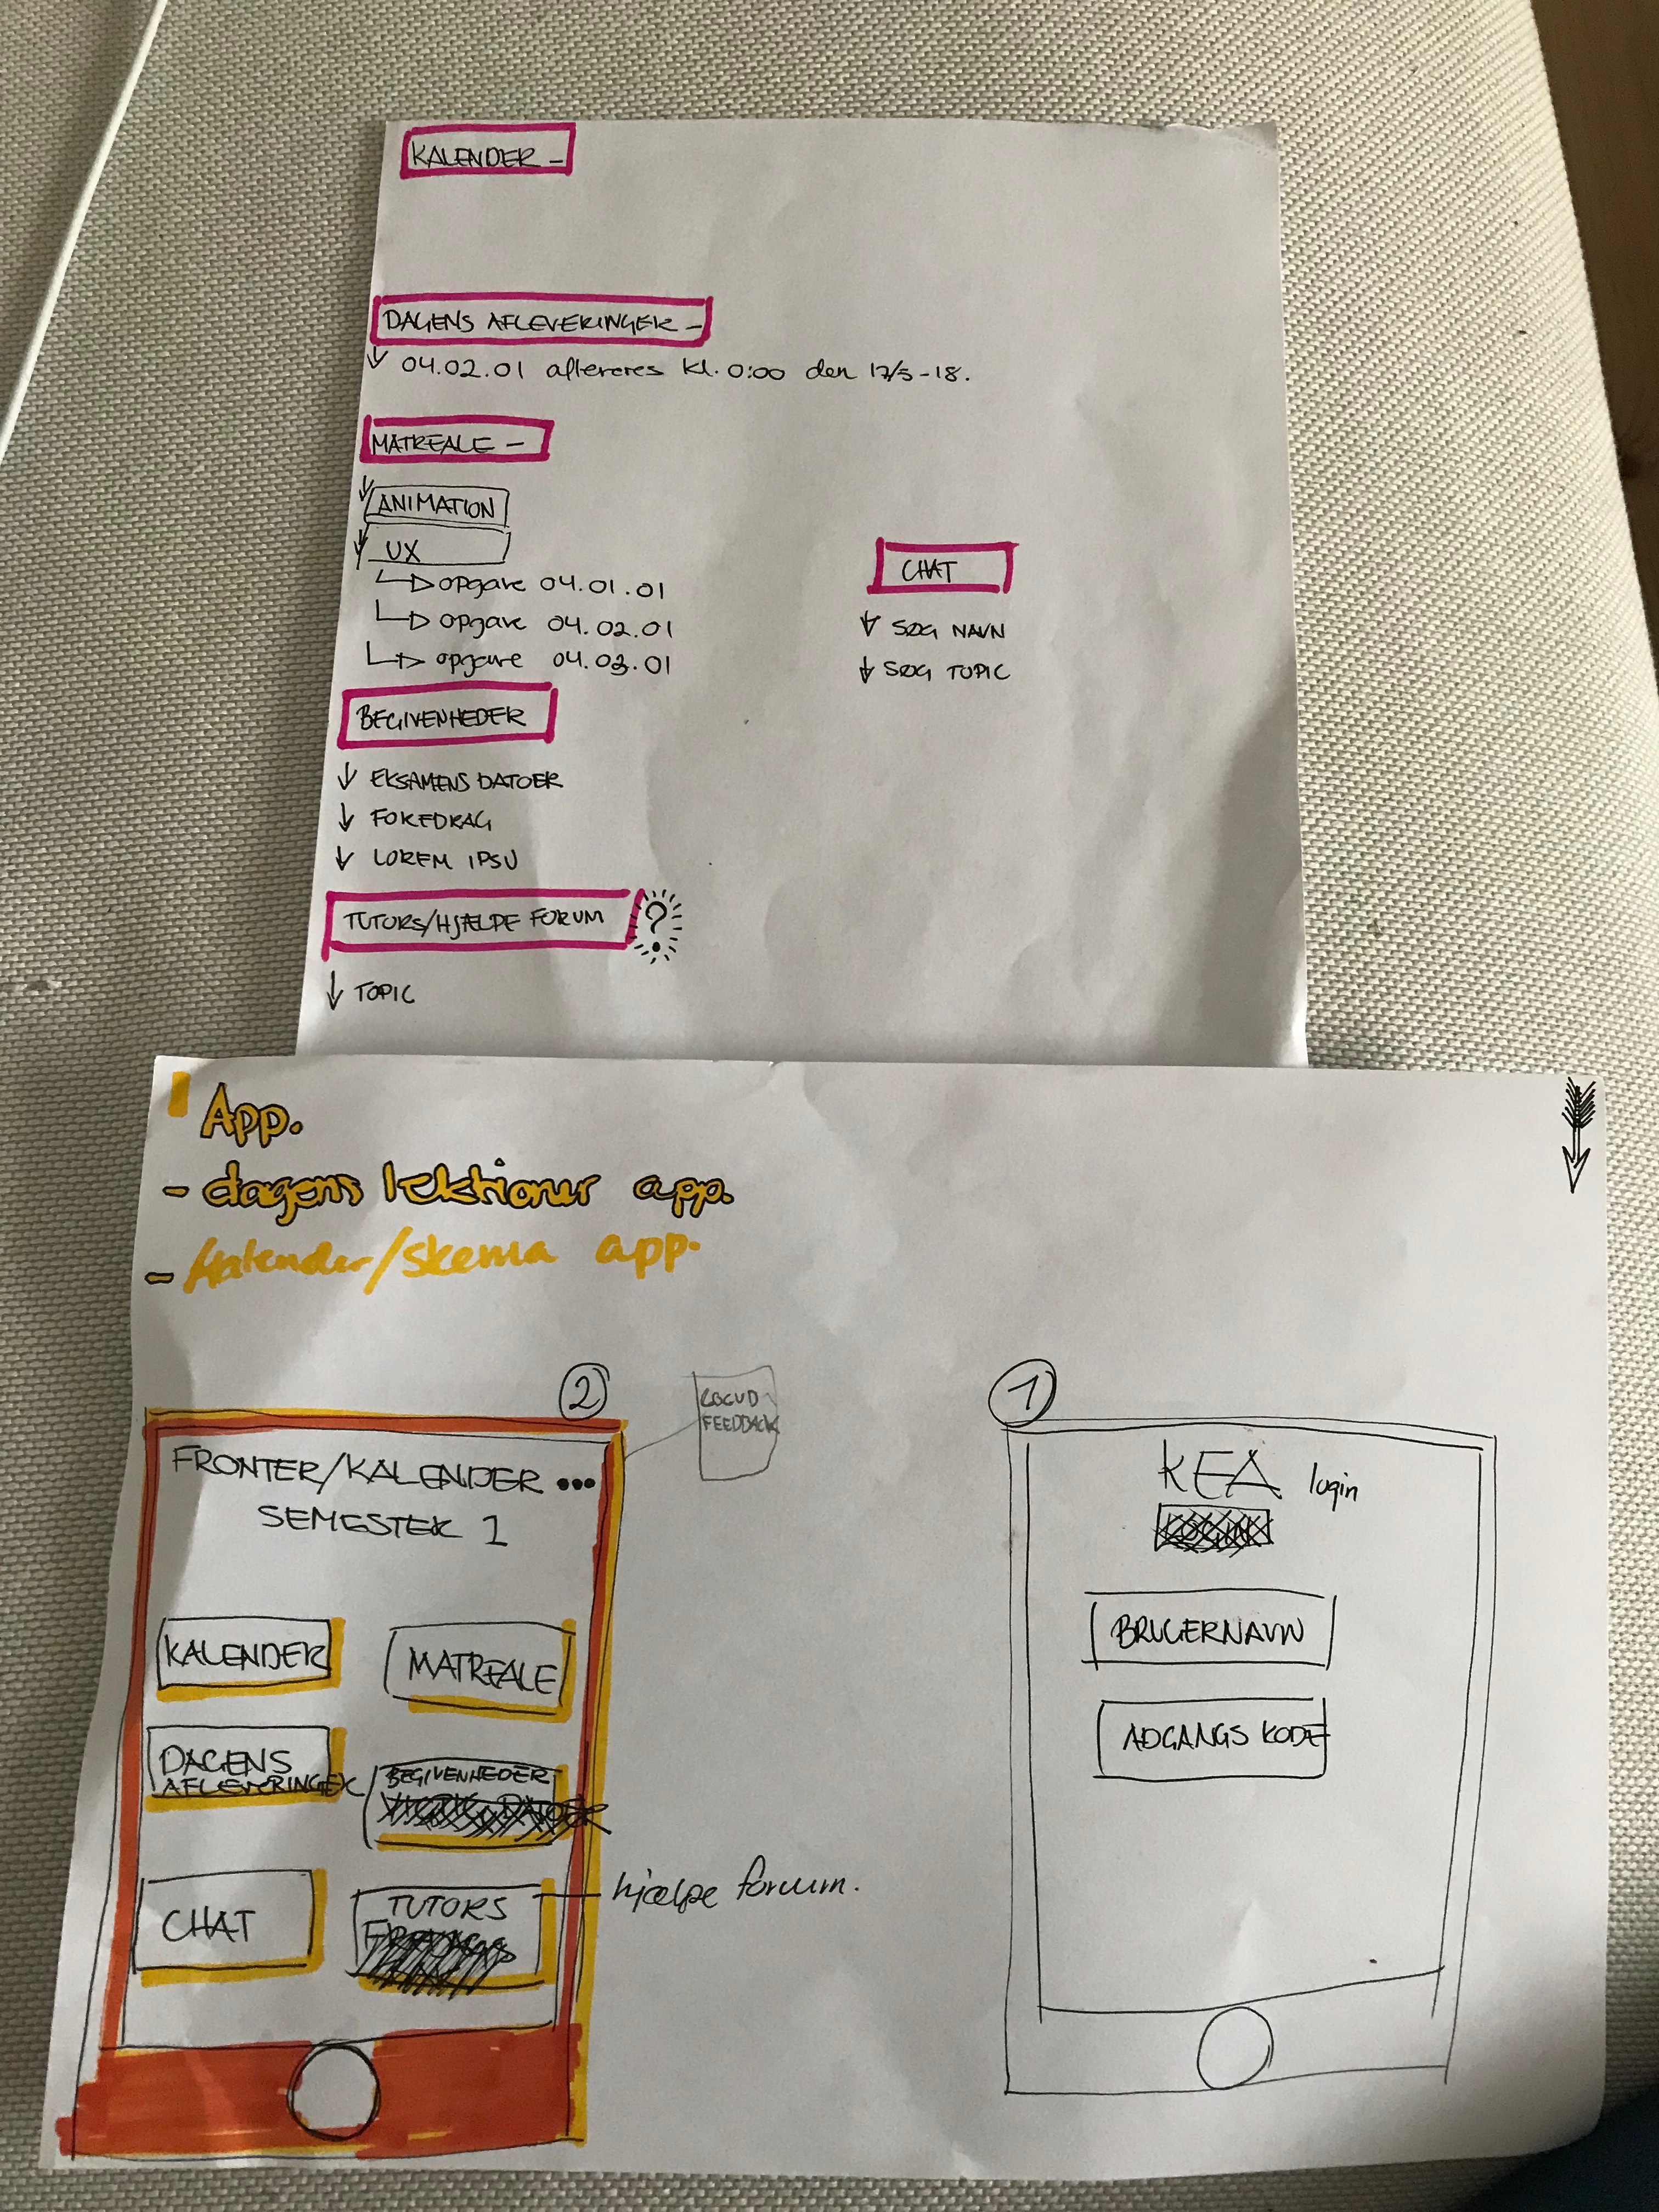 KALENDER –
DAGENS AFLEVERINGER –
04.02.01 afleveres kl. 0:00 den 17/5-18.
MATREALE –
ANIMATION
UX
opgave 04.01.01
opgave 04.02.01
opgave 04.03.01
CHAT
SØG NAVN
SØG TOPIC
BEGIVENHEDER
EKSAMENS DATOER
FOREDRAG
LOREM IPSU
TUTORS/HJÆLPE FORUM ?
TOPIC
App.
- dagens lektioner app.
- kalender/skema app.
2
FRONTER/KALENDER •••
SEMESTER 1
KALENDER
MATREALE
DAGENS
AFLEVERINGER
BEGIVENHEDER
DATOER
CHAT
TUTORS
hjælpe forum.
FEEDBACK
1
KEA login
LOGIN
BRUGERNAVN
ADGANGS KODE